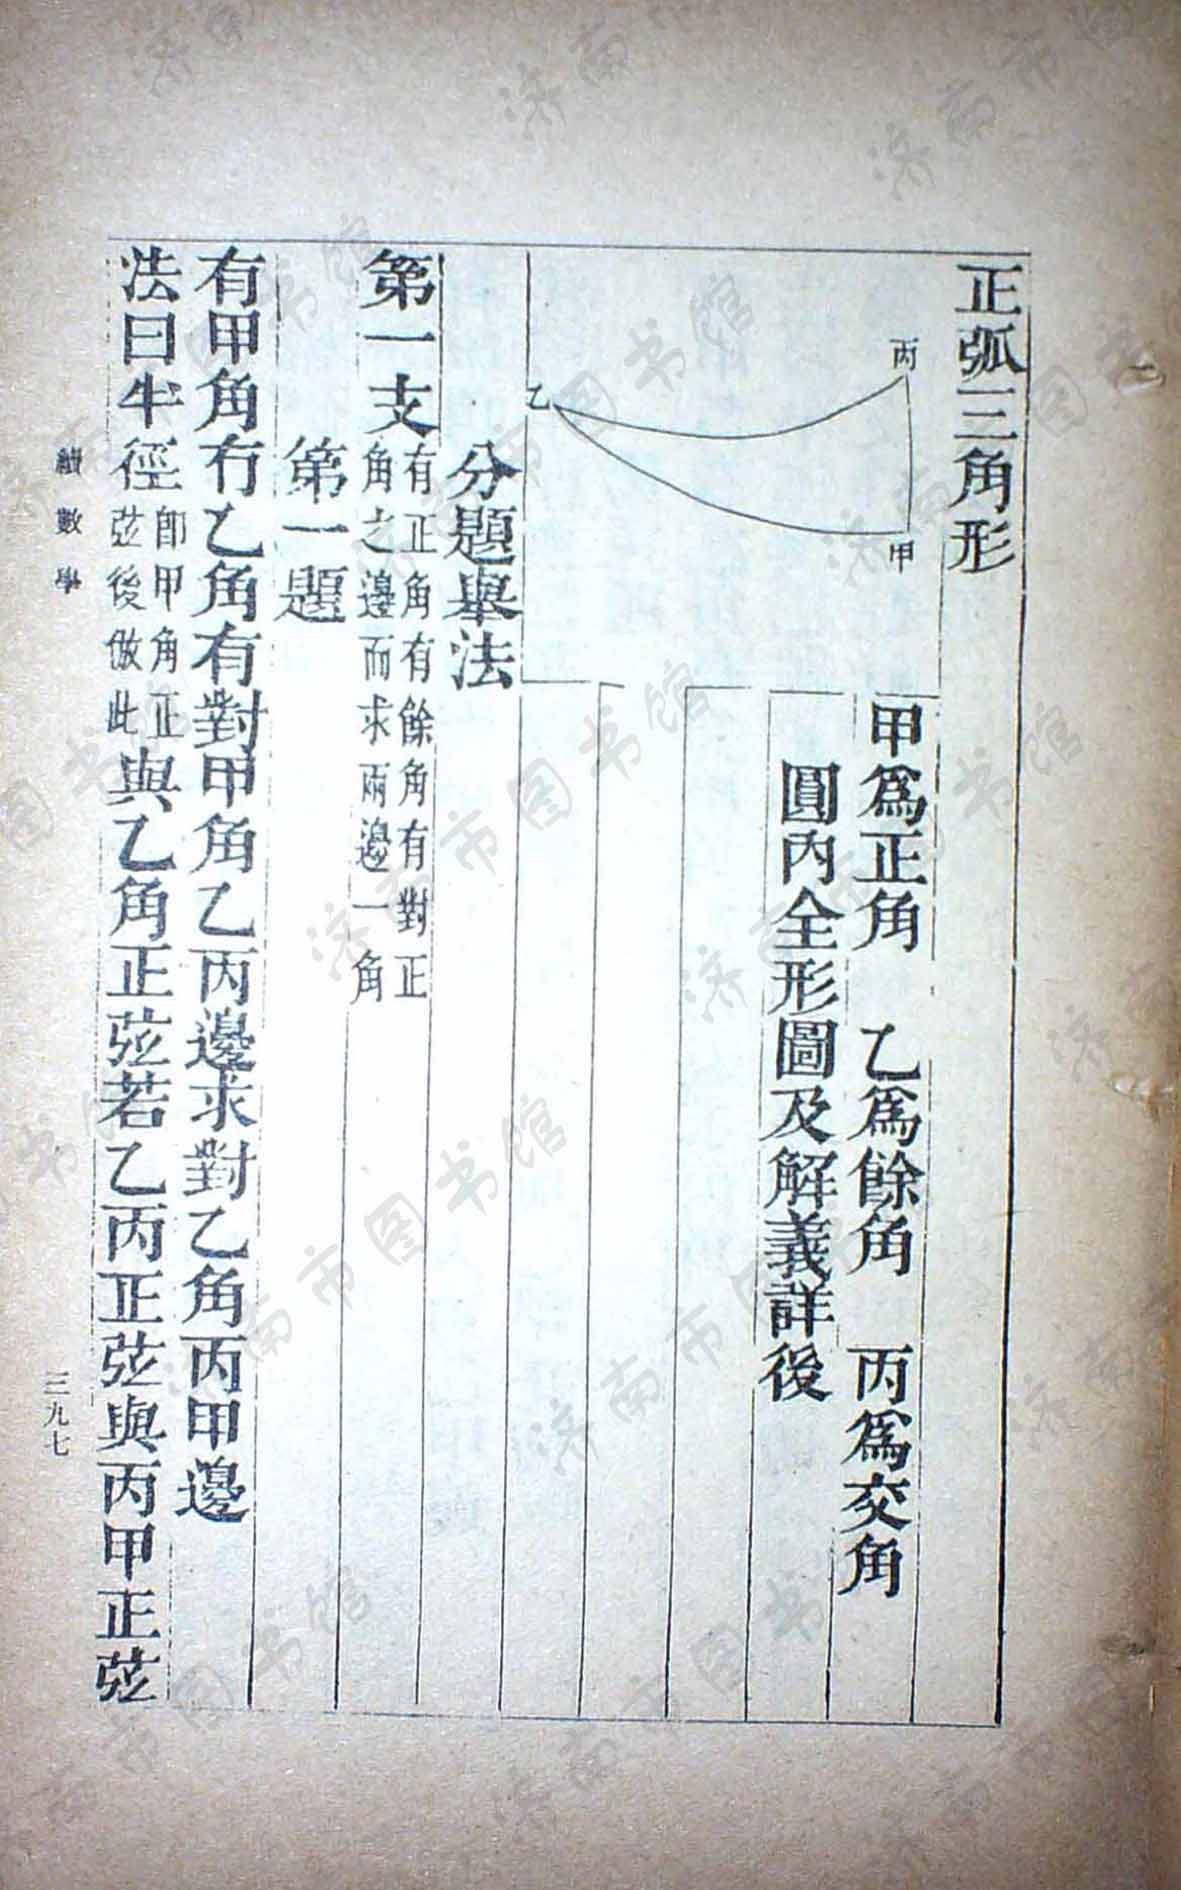 正弧三角形
丙
乙
甲
甲爲正角　乙爲餘角　丙爲交角
圓内全形圖及解義詳後
分題舉法
第一支
有正角有餘角有對正
角之邊而求兩邊一角
第一題
有甲角有乙角有對甲角乙丙邊求對乙角丙甲邊
法曰半徑
卽甲角正
弦後倣此
與乙角正弦若乙丙正弦與丙甲正弦
續數學
三九七
济南市图书馆